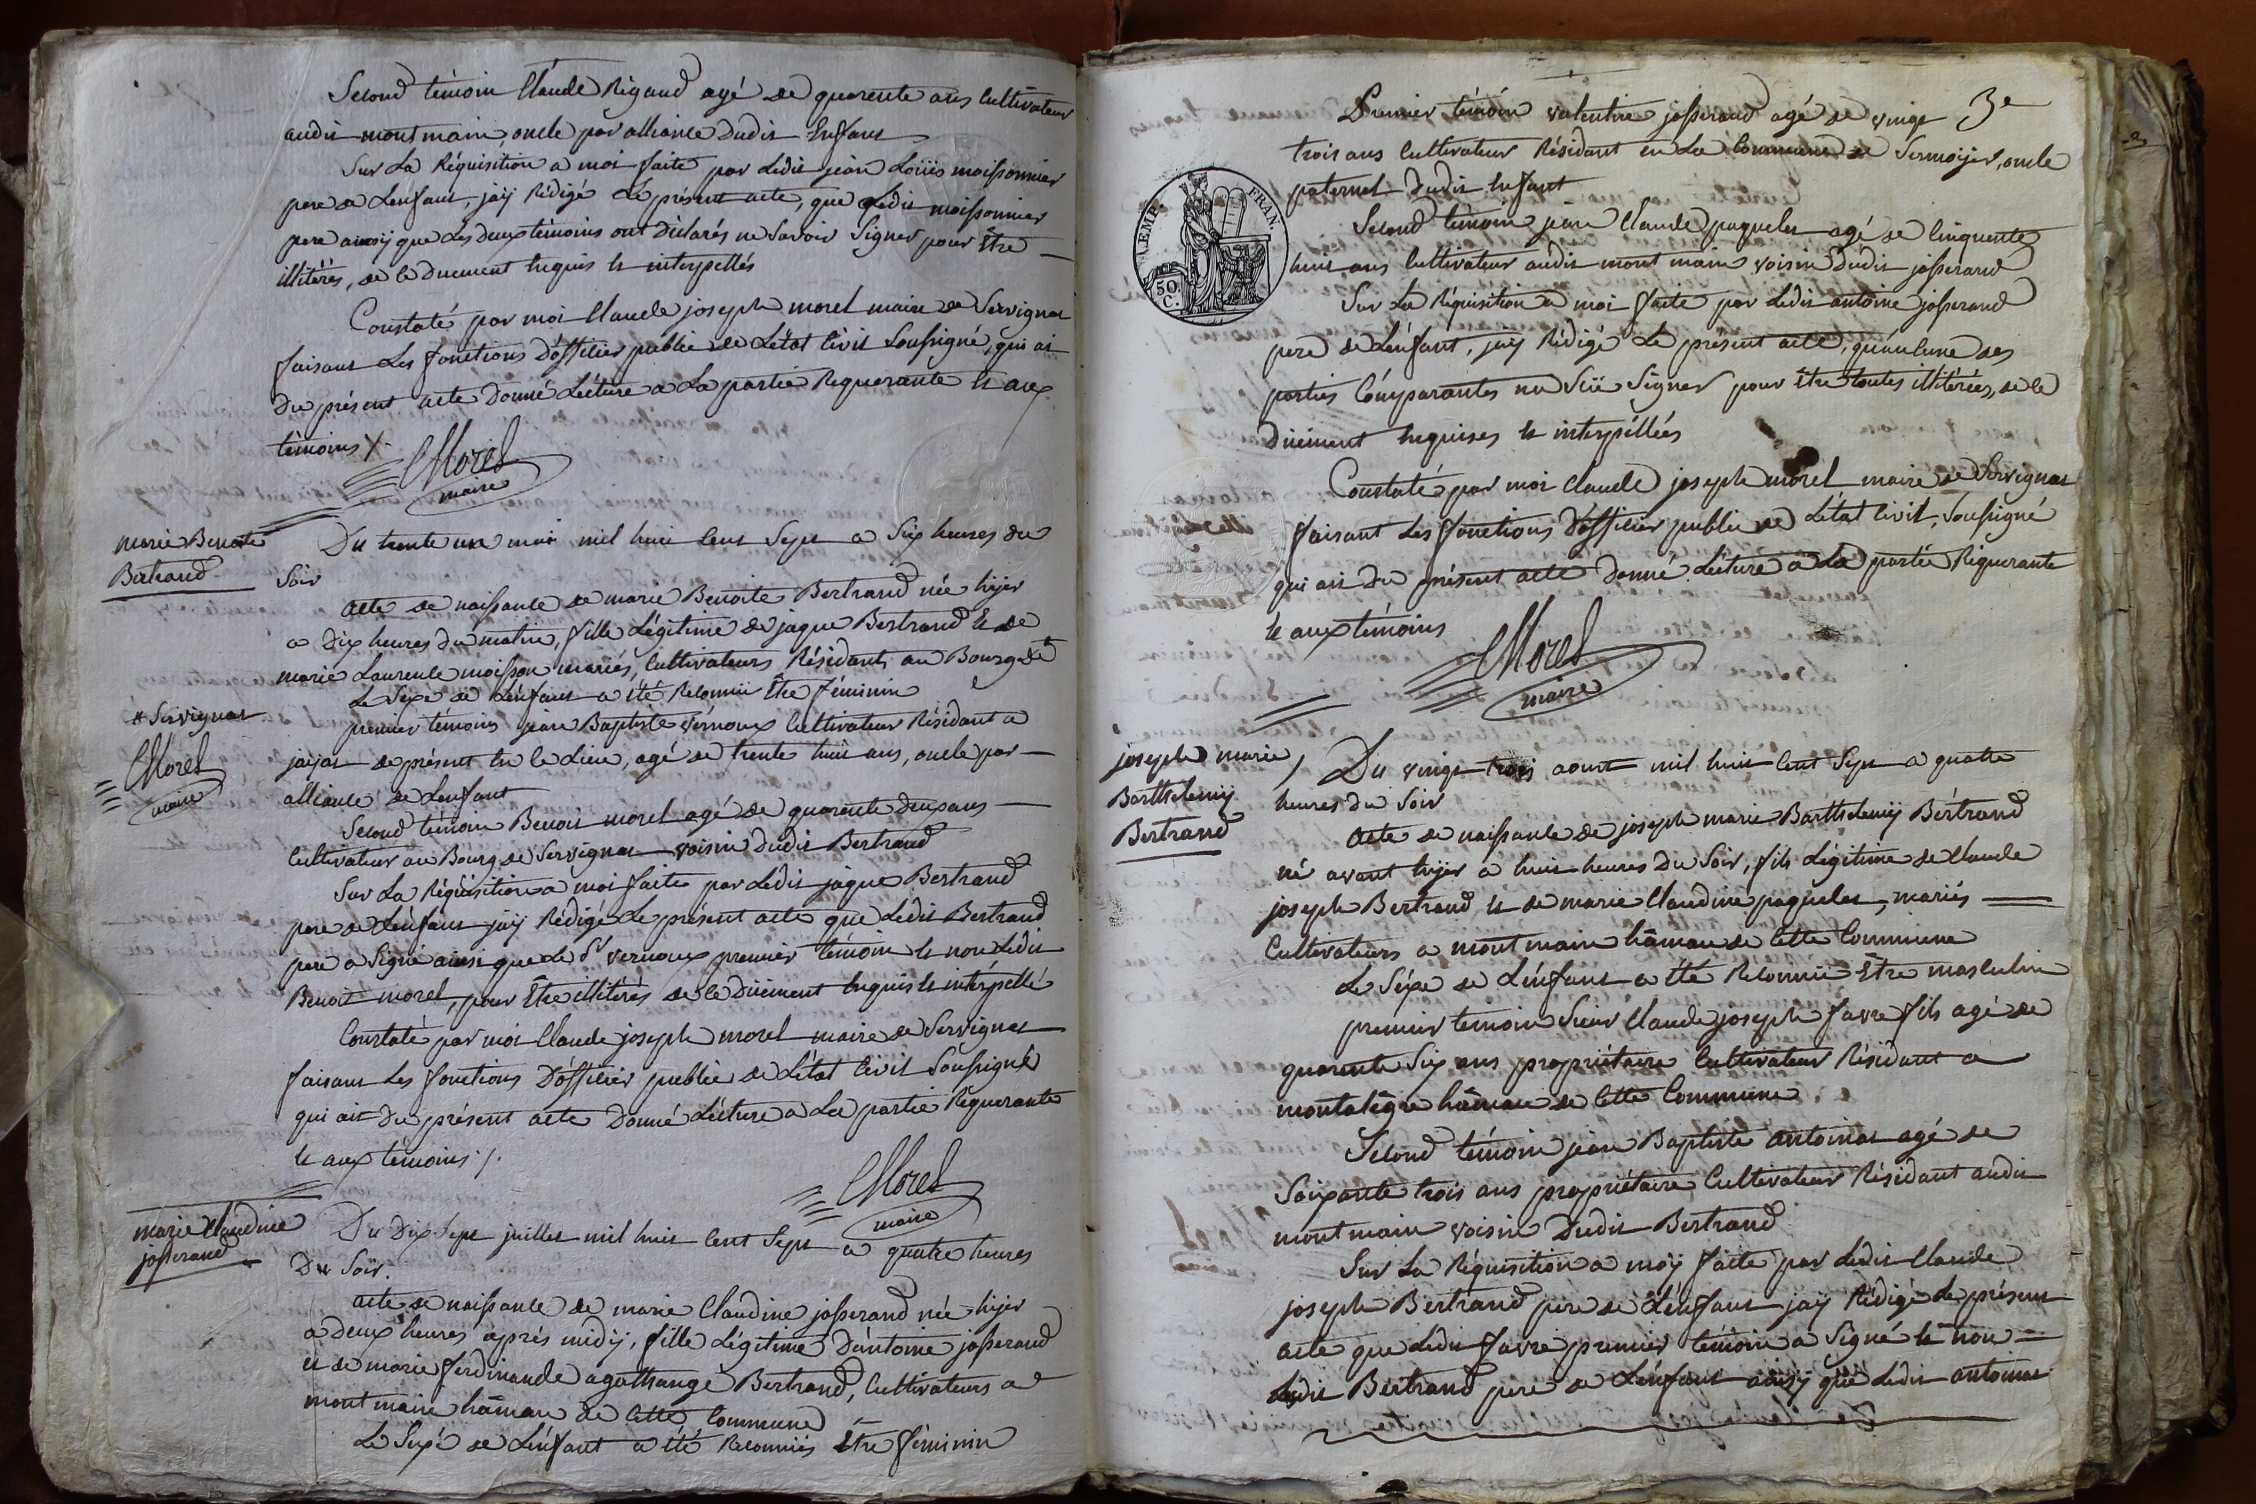 Second témoin Claude Rigaud agé de quarente ans Cultivateur
audit montmain, oncle par alliance dudit Enfant
Sur La Réquisition a moi faite par Ledit jean Loüis moissonnier
pere de Lenfant, jaÿ Rédigé Le présent acte, que Ledit moissonnier
pere ainsÿ que Les deux témoins ont Déclarés ne Savoir Signer pour Être
illitérés, de ce Duement Enquis et interpellés
Constaté par moi Claude joseph morel maire de Servignat
faisant Les fonctions D'officier public de L'état Civil Soussigné, qui ai
Du présent acte Donné Lécture a La partie Requerante et aux
témoins
Morel
maire
marie Benoite
Bertrand
Du trente un mai mil huit Cent Sept a Six heures du
Soir
acte de naissance de marie Benoite Bertrand née hÿer
a Dix heures du matin, fille Légitime de jaque Bertrand et de
marie Laurence moisson mariés, Cultivateurs Résidants au Bourg de #
Le Sexe de L'énfant a été Reconnü Être féminin
# Servignat
Morel
maire
premier témoins jean Baptiste vérnoux Cultivateur Résidant a
jaÿat de présent En Ce Lieu, agé de trente huit ans, oncle par
alliance de Lenfant
Second témoin Benoit morel agé de quarente deux ans
Cultivateur au Bourg de Servignat voisin dudit Bertrand
Sur La Réquisition a moi faite par Ledit jaque Bertrand
pere de L'énfant jaÿ Rédigé Le présent acte que Ledit Bertrand
pere a Signé ainsi que Le Sr vernoux premier témoin et non Ledit
Benoit morel, pour Être illiterés de ce Düement Enquis et intérpellé
Constaté par moi Claude joseph morel maire de Servignat
faisant Les fonctions D'officier public de L'état Civil Soussigné
qui ait Du présent acte Donné Lécture a La partie Requerante
et aux témoins ./.
Morel
maire
marie Claudine
josserand
Du Dix Sept juillet mil huit Cent Sept a quatre heures
Du Soir.
acte de naissance de marie Claudine josserand née hÿer
a Deux heures après midÿ, fille Légitime D'antoine josserand
et de marie ferdinande agathange Bertrand, Cultivateurs a
montmain hâmau de Cette Commune
Le Sexe de L'énfant a été Reconnüs Être féminin
3e
Premier témoin valentin josserand agé de vingt
trois ans Cultivateur Résidant en La Commune de Sermoÿer, oncle
paternel dudit Enfant
Second témoin jean Claude paquelet agé de Cinquente
huit ans Cultivateur audit montmain voisin Dudit josserand
Sur La Réquisition a moi faite par Ledit antoine josserand
pere de L'énfant, jaÿ Rédigé Le présent acte, qu'aucune des
parties Comparantes na Scü Signer pour Être toutes illitérées, de ce
Düement Enquises et interpéllées
TEMP. FRAN.
50.
C.
Constaté par moi Claude joseph morel maire de Servignat
faisant Les fonctions D'officier public de L'état Civil, Soussigné
qui ai du présent acte Donné Lécture a La partie Réquerante
et aux témoins
Morel
maire
joseph marie
Barthelemÿ
Bertrand
Du vingt trois aoust mil huit Cent Sept a quatre
heures du Soir
acte de naissance de joseph marie Barthelemÿ Bértrand
né avant hÿer a huit heures Du Soir, fils Légitime de Claude
joseph Bertrand et de marie Claudine paquelet, mariés
Cultivateurs a montmain hâmau de Cette Commune
Le Séxe de L'énfant a été Reconnü Être masculin
premier temoin Sieur Claude joseph favre fils agé de
quarente Six ans propriétaire Cultivateur Résidant a
montalègre hâmau de Cette Commune
Second témoin jean Baptiste antoinat agé de
Soixante trois ans propriétaire Cultivateur Résidant audit
montmain voisin Dudit Bertrand
Sur La Réquisition a moÿ faite par Ledit Claude
joseph Bertrand pere de L'énfant jaÿ Rédigé Le présent
acte que Ledit favre premier témoin a Signé et non
Ledit Bertrand pere de L'énfant ainsÿ que Ledit antoinat